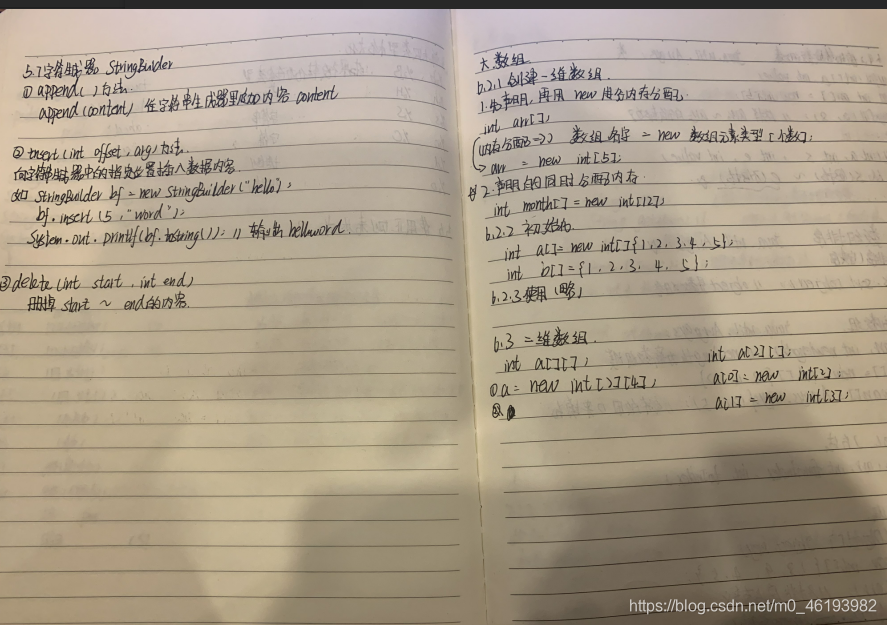 5.7字符串生成器 StringBuilder
① append( )方法.
append(content) 往字符串生成器里追加内容 content
② Insert(int offset, arg)方法.
向字符串生成器中的指定位置插入数据内容.
如 StringBuilder bf = new StringBuilder("hello");
bf.insert(5, "word");
System.out.printf(bf.tostring()); // 输出 helloword.
③ delete(int start, int end)
删掉 start ~ end的内容.
六.数组.
6.2.1 创建一维数组.
1.先声明,再用 new 进行内存分配.
int arr[];
(内存分配=>) 数组名字 = new 数组元素类型[个数];
arr = new int[5];
2.声明的同时分配内存.
int month[] = new int[12];
6.2.2 初始化
int a[] = new int[]{1,2,3,4,5};
int b[] = {1,2,3,4,5};
6.2.3 使用(略)
6.3 二维数组.
int a[][];
① a = new int[2][4];
②
int a[2][];
a[0] = new int[2];
a[1] = new int[3];
https://blog.csdn.net/m0_46193982